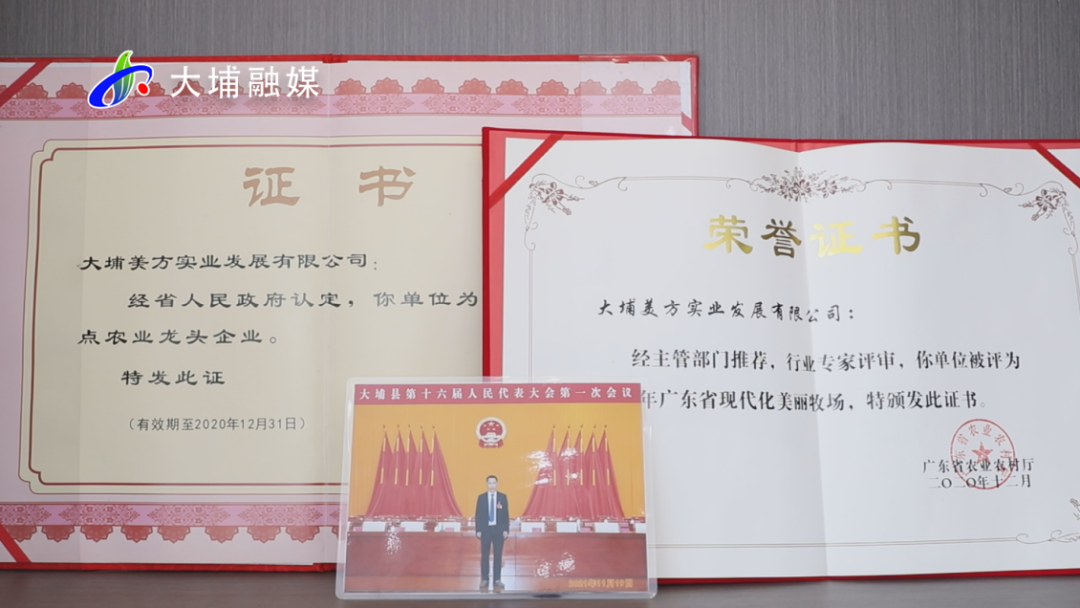 大埔融媒
证书
大埔美方实业发展有限公司：
经省人民政府认定，你单位为
点农业龙头企业。
特发此证
（有效期至2020年12月31日）
荣誉证书
大埔美方实业发展有限公司：
经主管部门推荐，行业专家评审，你单位被评为
年广东省现代化美丽牧场，特颁发此证书。
广东省农业农村厅
二〇二〇年十二月
大埔县第十六届人民代表大会第一次会议